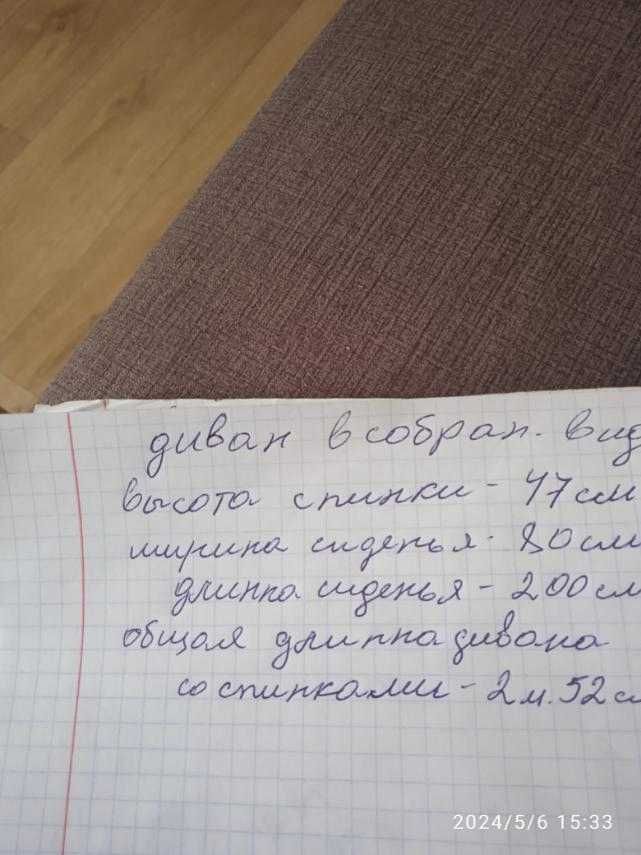 диван в собран. вид
высота спинки - 47 см
ширина сиденья - 80 см
длинна сиденья - 200 см
общая длинна дивана
со спинками - 2 м. 52 см
2024/5/6 15:33